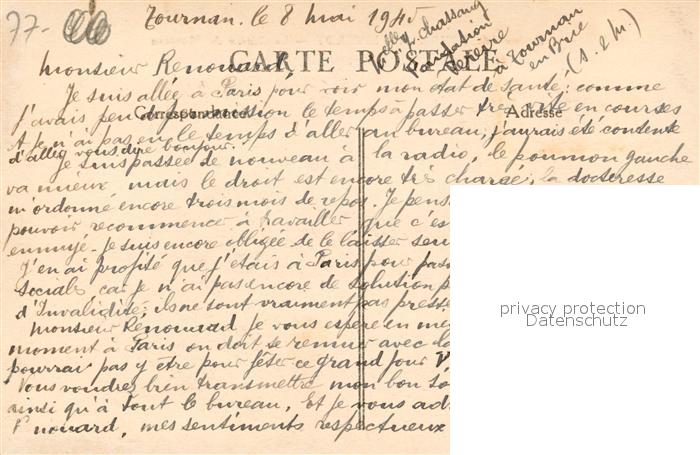 77-
Tournan. le 8 mai 1945
Melle J. chassang
Fondation
à Tournan
en Brie
(S. et M.)
CARTE POSTALE
Correspondance
Adresse
Monsieur Renouard,
Je suis allée à Paris pour voir mon état de santé; comme
j'avais peu de permission le temps à passer très vite en courses
je n'ai pas eu le temps d'aller au bureau, j'aurais été contente
d'aller vous dire bonjour.
Je suis passée de nouveau à la radio, le poumon gauche
va mieux, mais le droit est encore très chargé; la doctoresse
m'ordonne encore trois mois de repos. Je pens
pouvoir recommencé à travailler que c'es
ennuyé. Je suis encore obligée de le laisser seu
J'en ai profité que j'étais à Paris pour pass
sociales car je n'ai pas encore de solution p
d'Invalidité; ils ne sont vraiment pas presse
Monsieur Renouard je vous espère en me
moment à Paris on doit se remuer avec la
pourrai pas y être pour fêter ce grand jour V
Vous voudrez bien transmettre mon bon so
ainsi qu'à tout le bureau, Et je vous ad
nouard, mes sentiments respectueux
privacy protection
Datenschutz